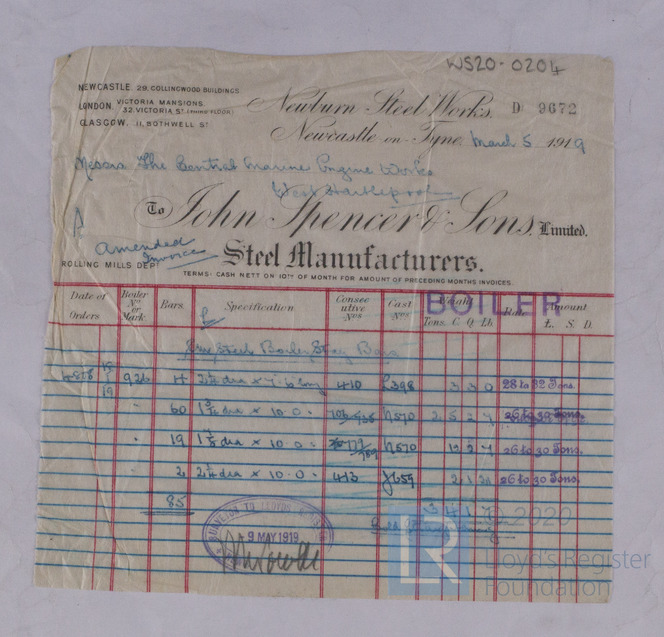 WS20-0204
NEWCASTLE 29, COLLINGWOOD BUILDINGS.
LONDON, VICTORIA MANSIONS, 32, VICTORIA ST (THIRD FLOOR)
GLASGOW, 11, BOTHWELL ST
Newburn Steel Works. D 9672
Newcastle on Tyne, March 5 1919
Messrs The Central Marine Engine Works
West Hartlepool
To John Spencer & Sons, Limited.
Amended Invoice
Steel Manufacturers.
ROLLING MILLS DEPT
TERMS: CASH NETT ON 10TH OF MONTH FOR AMOUNT OF PRECEDING MONTHS INVOICES.
BOILER
Date of Orders Boiler No or Mark Bars. Specification Consecutive Nos Cast Nos Weight Tons. C. Q. Lb. Rate Amount £. S. D.
Steel Boiler Stay Bars
926 4 dia × 7.6 long 410 398 3 3 0 28 to 32 Tons.
" 60 dia × 10.0 " N570 2 5 2 26 to 30 Tons.
" 19 dia × 10.0 " N570 12 2 26 to 30 Tons.
" 2 dia × 10.0 " 413 659 2 1 26 to 30 Tons.
85
SURVEYOR TO LLOYDS
9 MAY 1919
© 2020
LR
Lloyd's Register
Foundation